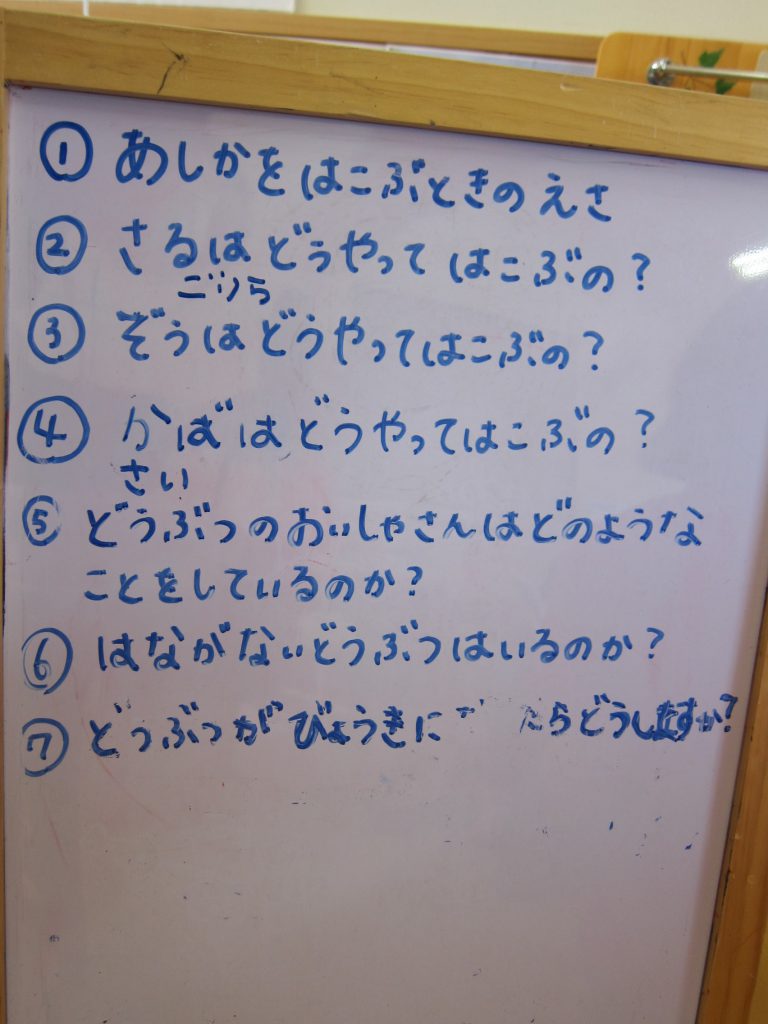 ① あしかをはこぶときのえさ
② さるはどうやってはこぶの?
ごりら
③ ぞうはどうやってはこぶの?
④ かばはどうやってはこぶの?
さい
⑤ どうぶつのおいしゃさんはどのような
ことをしているのか?
⑥ はながないどうぶつはいるのか?
⑦ どうぶつがびょうきに たらどうしますか?